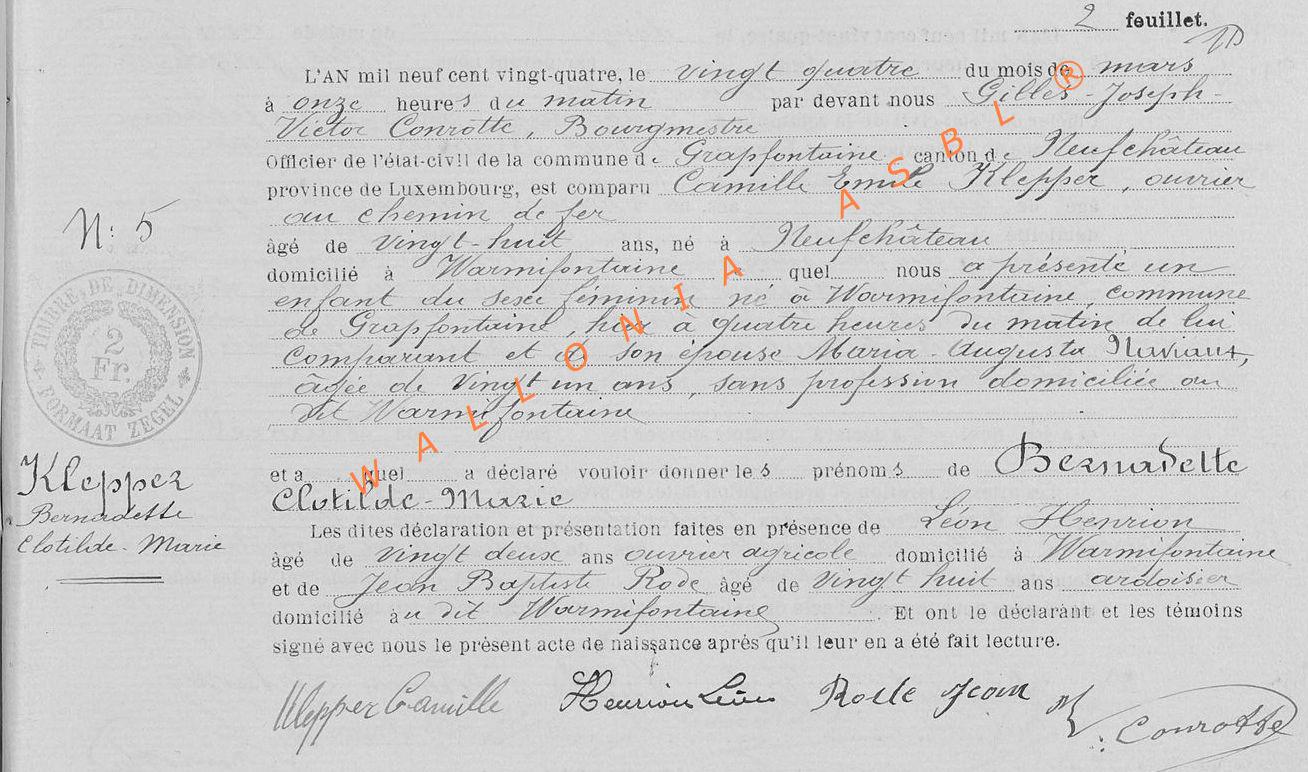 2 feuillet.
L'AN mil neuf cent vingt-quatre, le vingt quatre du mois de mars
à onze heures du matin par devant nous Gilles-Joseph-
Victor Conrotte, Bourgmestre
Officier de l'état-civil de la commune de Grapfontaine canton de Neufchâteau
province de Luxembourg, est comparu Camille Emile Klepper, ouvrier
au chemin de fer
âgé de vingt-huit ans, né à Neufchâteau
domicilié à Warmifontaine quel nous a présenté un
enfant du sexe féminin né à Warmifontaine, commune
de Grapfontaine, hier à quatre heures du matin de lui
comparant et de son épouse Maria-Augusta
âgée de vingt un ans, sans profession domiciliée au
dit Warmifontaine
et a quel a déclaré vouloir donner les prénoms de Bernadette
Clotilde-Marie
Les dites déclaration et présentation faites en présence de Léon Henrion
âgé de vingt deux ans ouvrier agricole domicilié à Warmifontaine
et de Jean Baptiste Rode âgé de vingt huit ans ardoisier
domicilié au dit Warmifontaine. Et ont le déclarant et les témoins
signé avec nous le présent acte de naissance après qu'il leur en a été fait lecture.
Klepper Camille Henrion Léon Rode Jean Conrotte
N: 5
TIMBRE DE DIMENSION
2
Fr.
FORMAAT ZEGEL
Klepper
Bernadette
Clotilde-Marie
WALLONIA ASBL ®